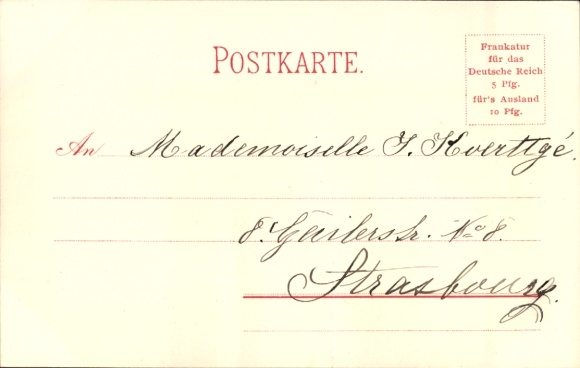 POSTKARTE.
Frankatur
für das
Deutsche Reich
5 Pfg.
für's Ausland
10 Pfg.
An Mademoiselle J. Koerttgé.
8. Geilerstr. No 8.
Strasbourg.